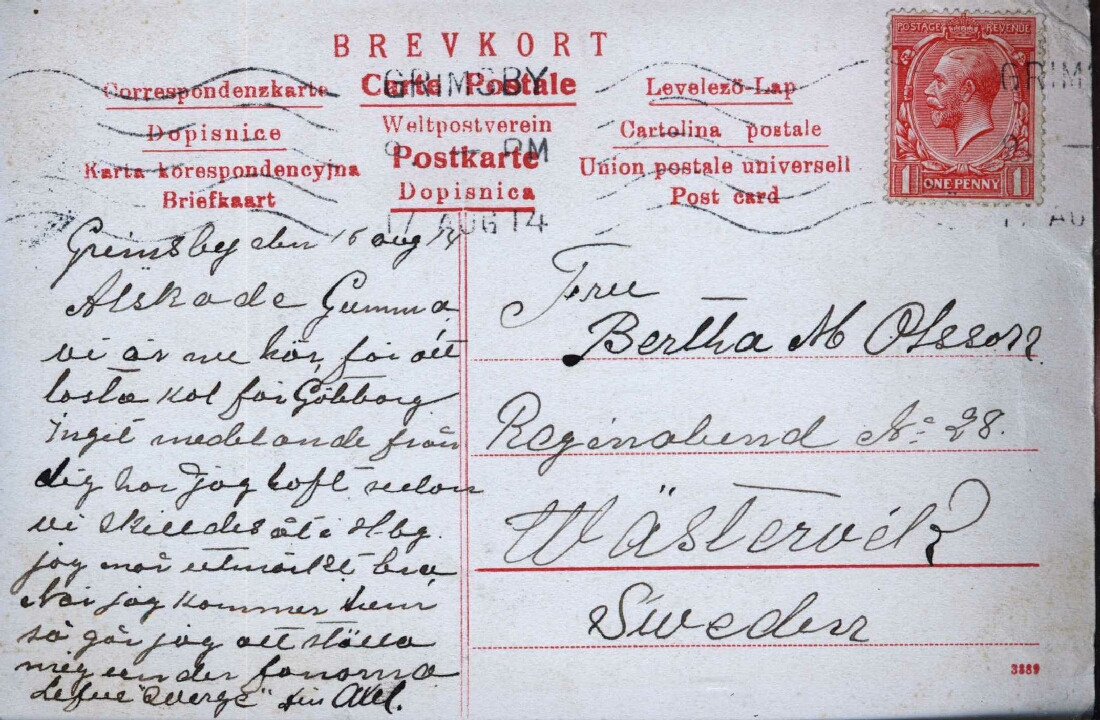 BREVKORT
Correspondenzkarte
Carte Postale
Levelezö-Lap
Dopisnice
Weltpostverein
Cartolina postale
Karta korespondencyjna
Postkarte
Union postale universell
Briefkaart
Dopisnica
Post card
GRIMSBY
PM
17 AUG 14
POSTAGE REVENUE
1 ONE PENNY 1
GRIMS
17 AU
Grimsby den 16 aug 14
Älskade Gumma
vi är nu här för att
lasta kol för Göteborg
Inget medelande från
dig har jag haft sedan
vi skildes åt i H-bg.
jag mår utmärkt bra
När jag kommer hem
så går jag att ställa
mig under fanorna
Lefve "Sverge" din Axel.
Fru
Bertha M Olsson
Reginabend No 28.
Wästervik
Sweden
3889